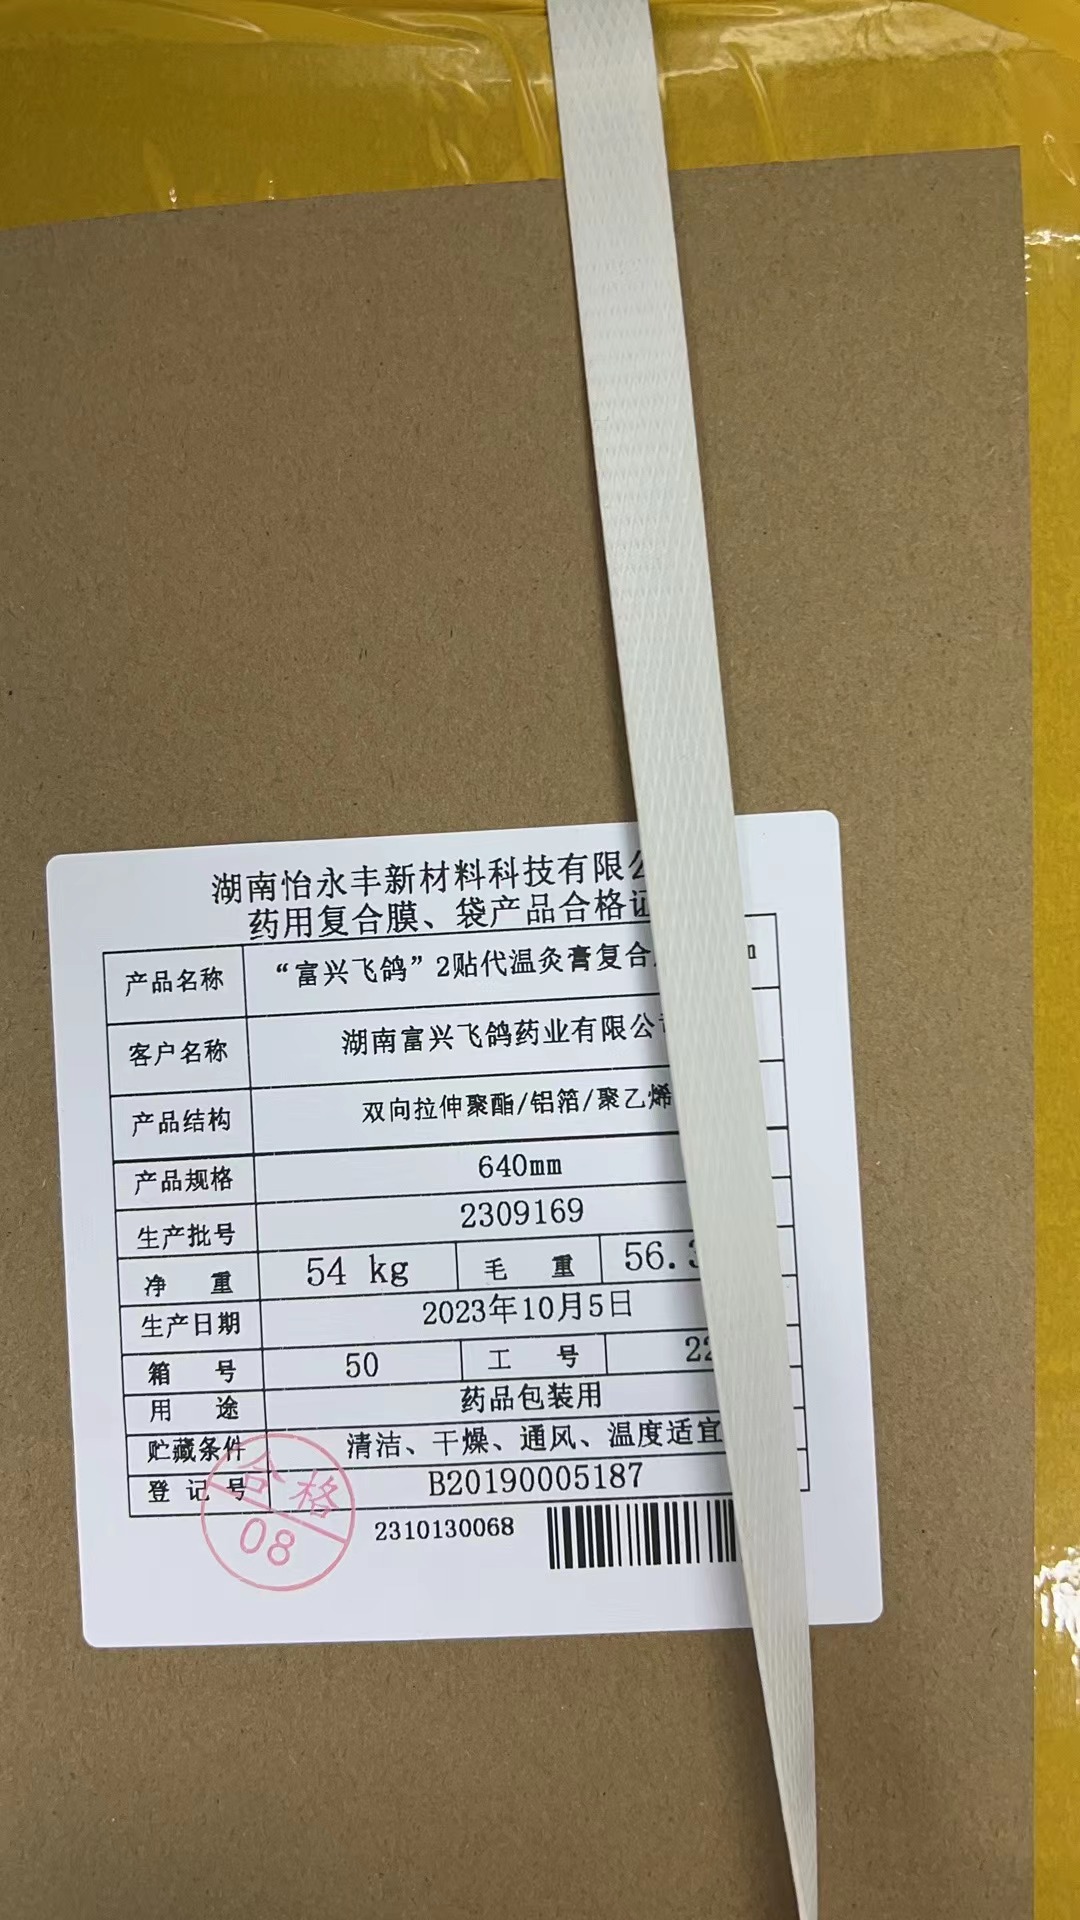 湖南怡永丰新材料科技有限公
药用复合膜、袋产品合格证
产品名称 “富兴飞鸽”2贴代温灸膏复合
客户名称 湖南富兴飞鸽药业有限公司
产品结构 双向拉伸聚酯/铝箔/聚乙烯
产品规格 640mm
生产批号 2309169
净 重 54 kg 毛 重 56.3
生产日期 2023年10月5日
箱 号 50 工 号 22
用 途 药品包装用
贮藏条件 清洁、干燥、通风、温度适宜
登记号 B20190005187
合格
08
2310130068